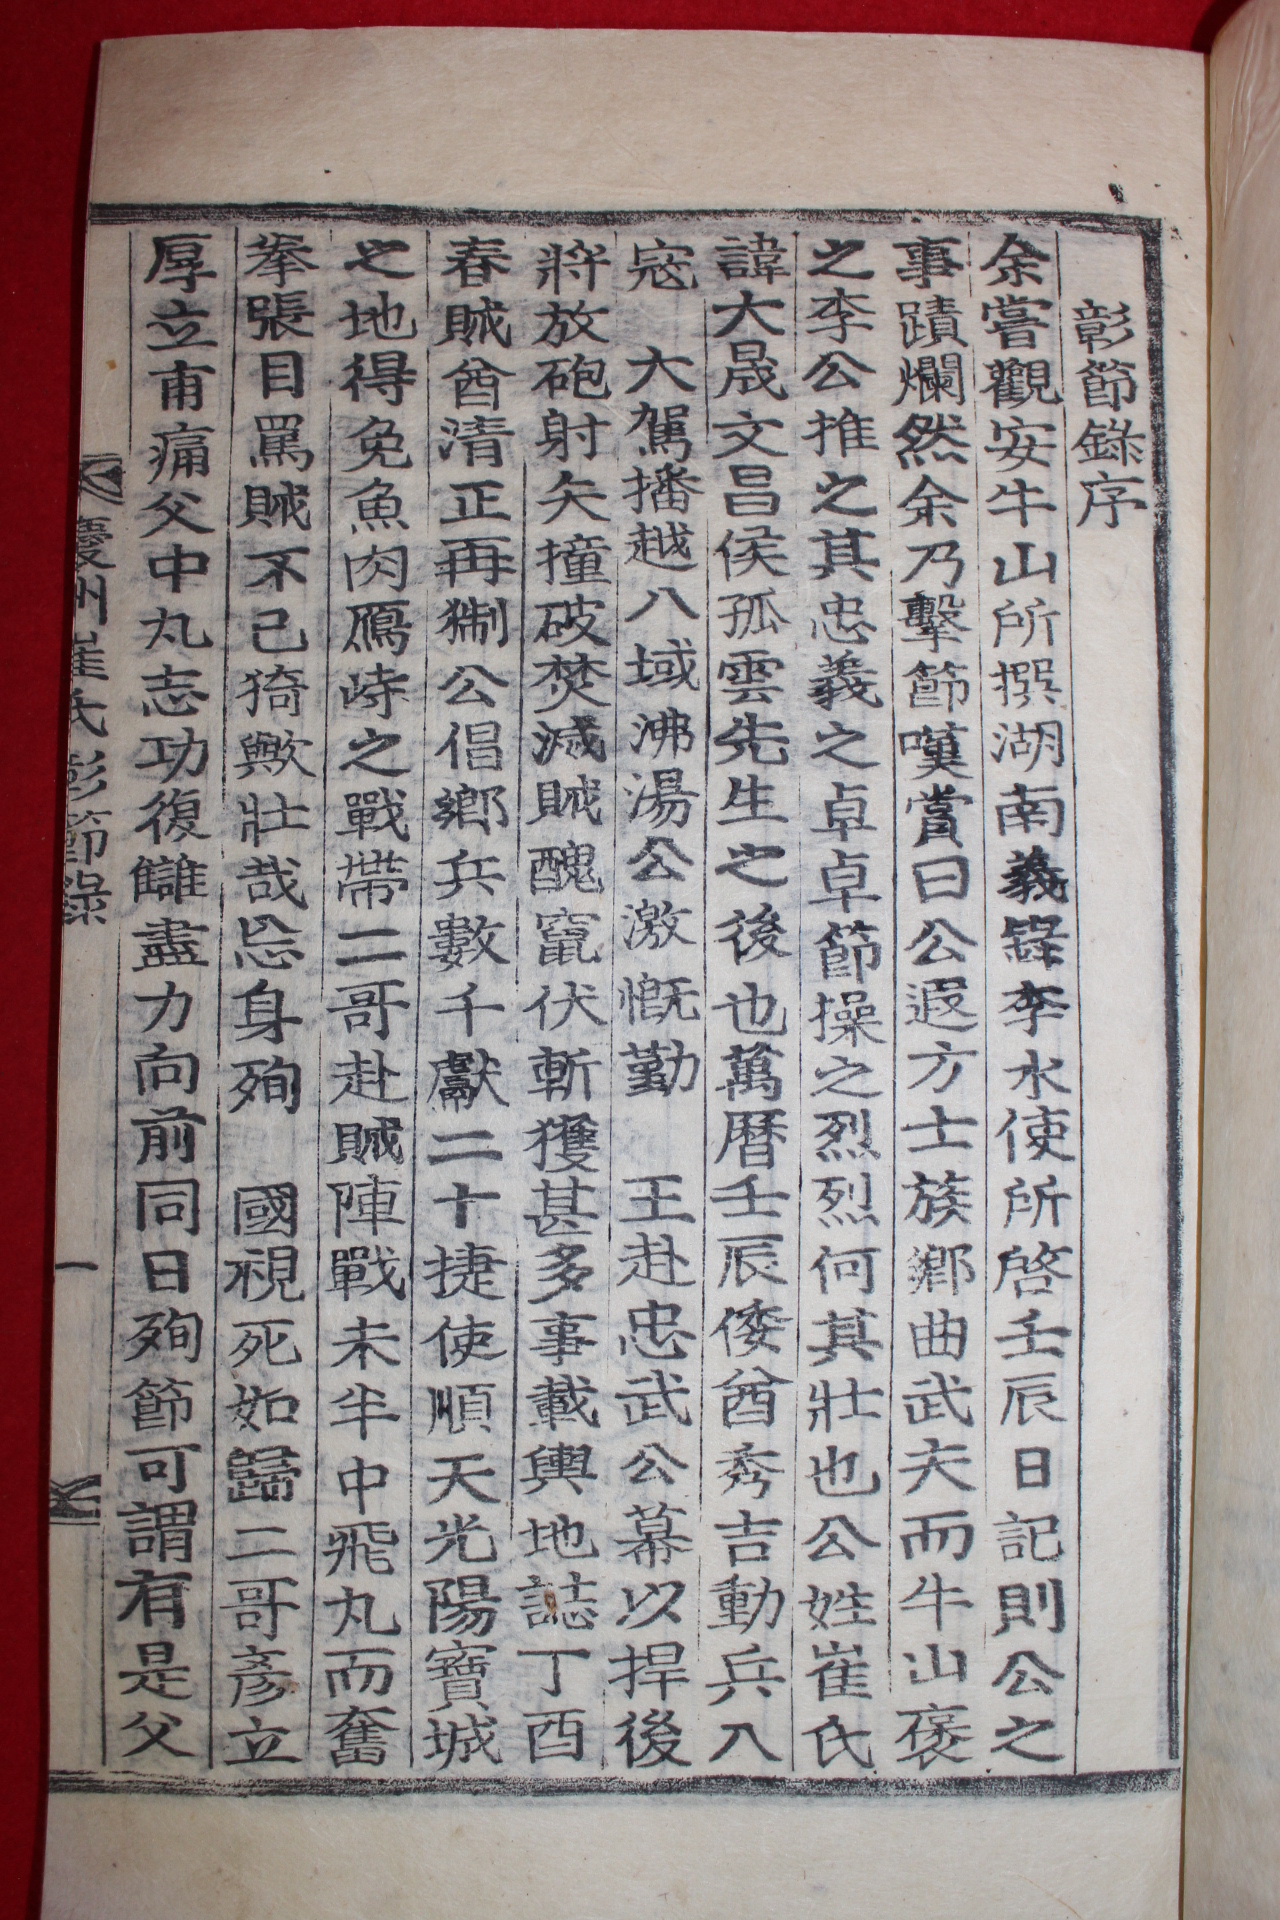 彰節錄序
余嘗觀安牛山所撰湖南義錄李水使所啓壬辰日記則公之
事蹟爛然余乃擊節嘆賞曰公遐方士族鄉曲武夫而牛山褒
之李公推之其忠義之卓卓節操之烈烈何其壯也公姓崔氏
諱大晟文昌侯孤雲先生之後也萬曆壬辰倭酋秀吉動兵入
寇　大駕播越八域沸湯公激慨勤　王赴忠武公幕以捍後
將放砲射矢撞破焚滅賊醜竄伏斬獲甚多事載輿地誌丁酉
春賊酋淸正再猘公倡鄉兵數千獻二十捷使順天光陽寶城
之地得免魚肉鴈峙之戰帶二哥赴賊陣戰未半中飛丸而奮
拳張目罵賊不已猗歟壯哉忘身殉　國視死如歸二哥彥立
厚立甫痛父中丸志功復讎盡力向前同日殉節可謂有是父
慶州崔氏彰節錄
一